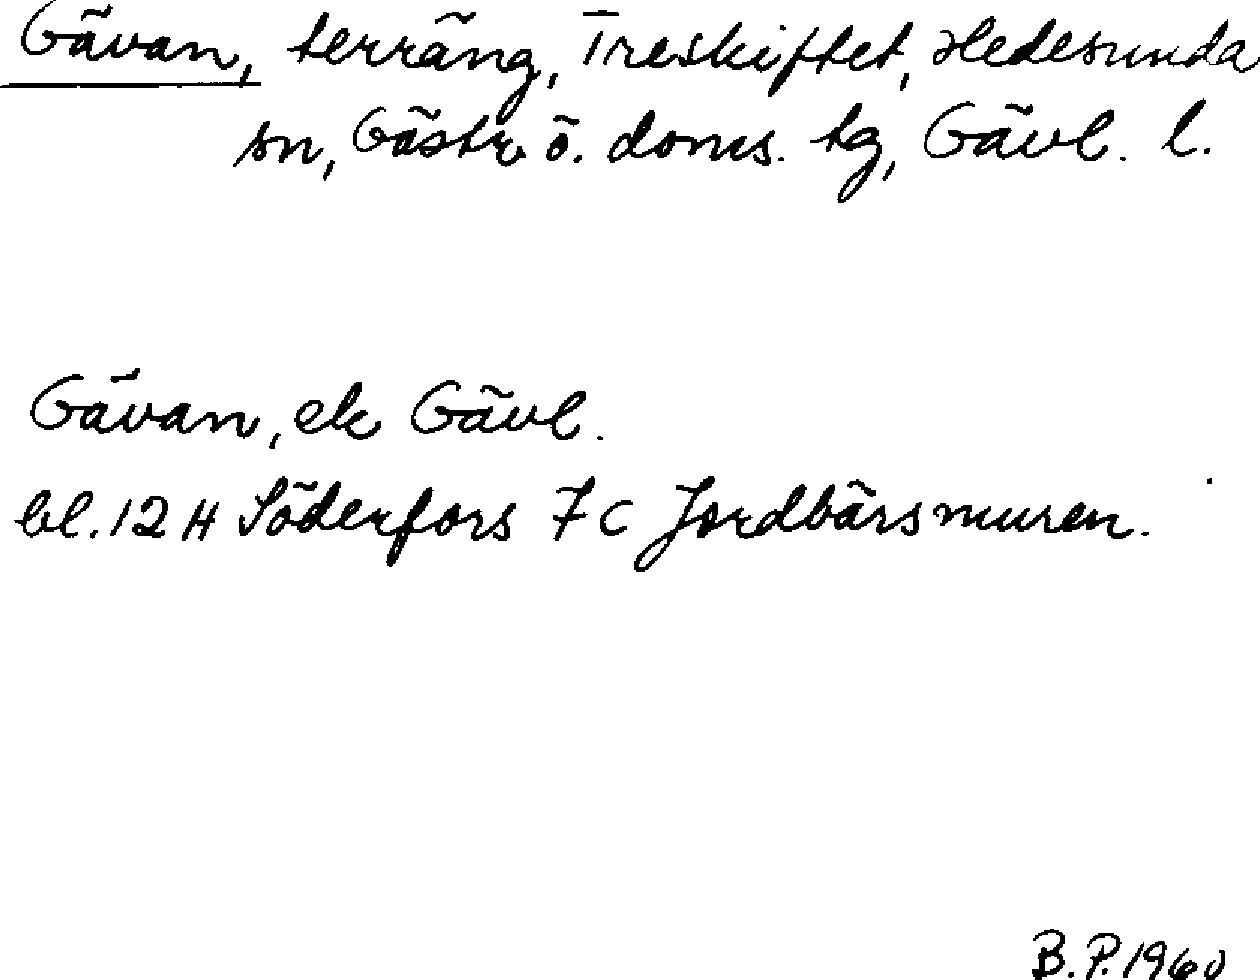 Gävan, terräng, Treskiftet, Hedesunda
sn, Gästr ö. doms. tg, Gävl. l.
Gävan, ek Gävl.
bl. 12 H Söderfors 7 c Jordbärsmuren.
B.P. 1960